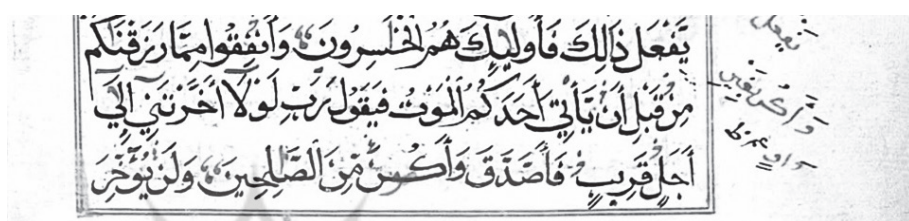 يَّفْعَلْ ذَٰلِكَ فَأُولَٰئِكَ هُمُ الْخَٰسِرُونَ وَأَنْفِقُوا مِمَّا رَزَقْنَٰكُمْ
مِنْ قَبْلِ أَنْ يَّأْتِيَ أَحَدَكُمُ الْمَوْتُ فَيَقُولَ رَبِّ لَوْلَا أَخَّرْتَنِي إِلَىٰ
أَجَلٍ قَرِيبٍ فَأَصَّدَّقَ وَأَكُنْ مِّنَ الصَّٰلِحِينَ وَلَنْ يُّؤَخِّرَ
يفعل